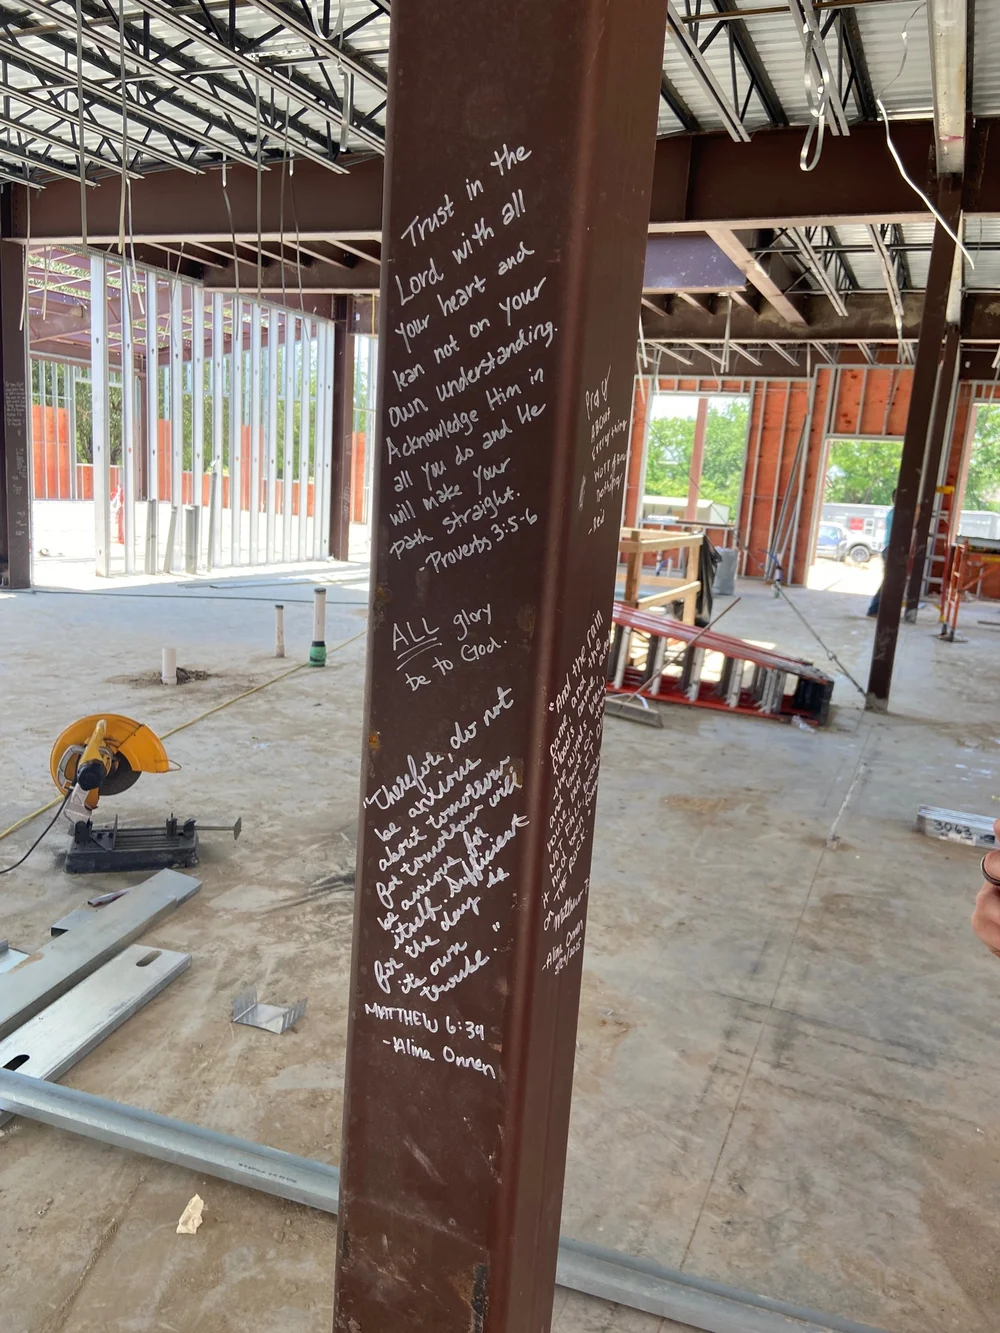 Trust in the
Lord with all
your heart and
lean not on your
own understanding.
Acknowledge Him in
all you do and He
will make your
path straight.
-Proverbs 3:5-6
ALL glory
be to God.
"Therefore, do not
be anxious
about tomorrow
for tomorrow will
be anxious for
itself. Sufficient
for the day is
its own
trouble."
MATTHEW 6:34
-Alina Onnen
Pray
ABOUT
Everything
WORRY About
Nothing
"And the rain
came, and the
floods came,
and the winds
it did
not fall
the rock
Matthew 7
-Alina Onnen
3063